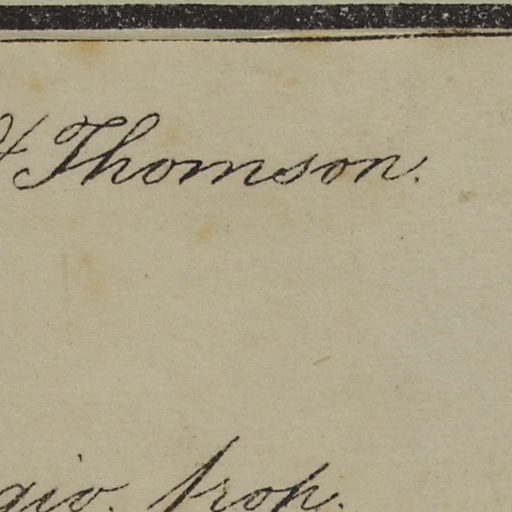 Thomson.
gio. prop.